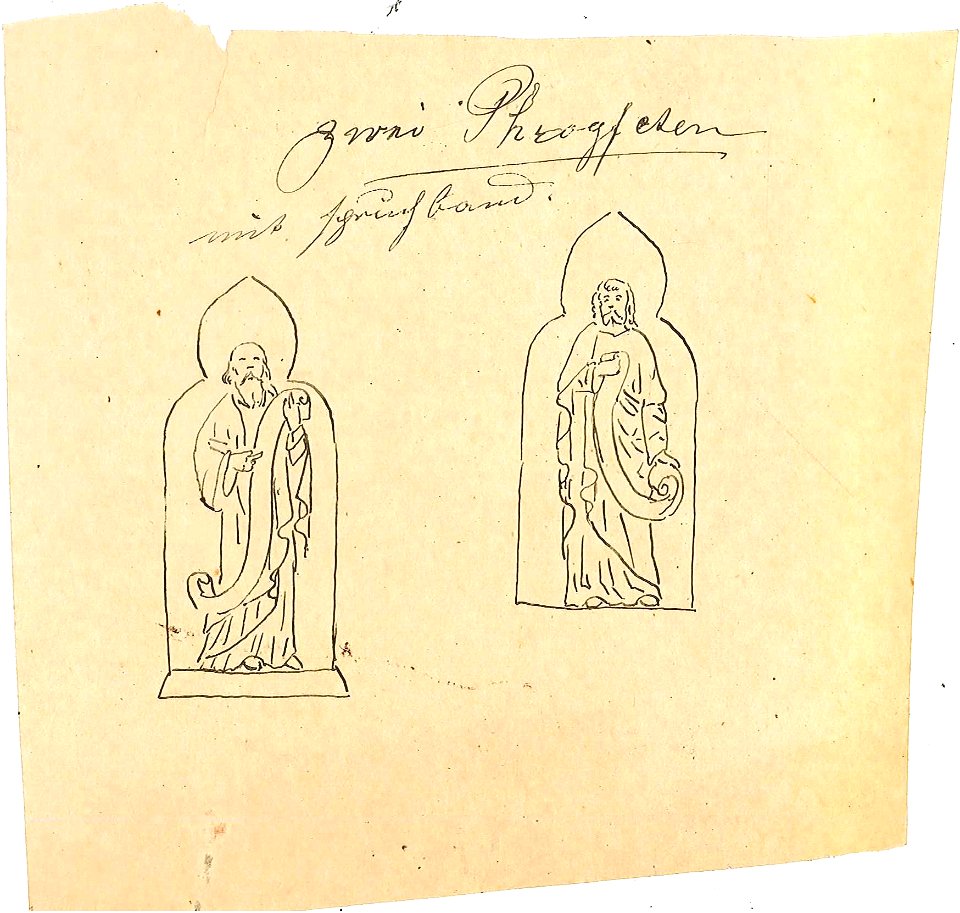 zwei Phropheten
mit spruchband.